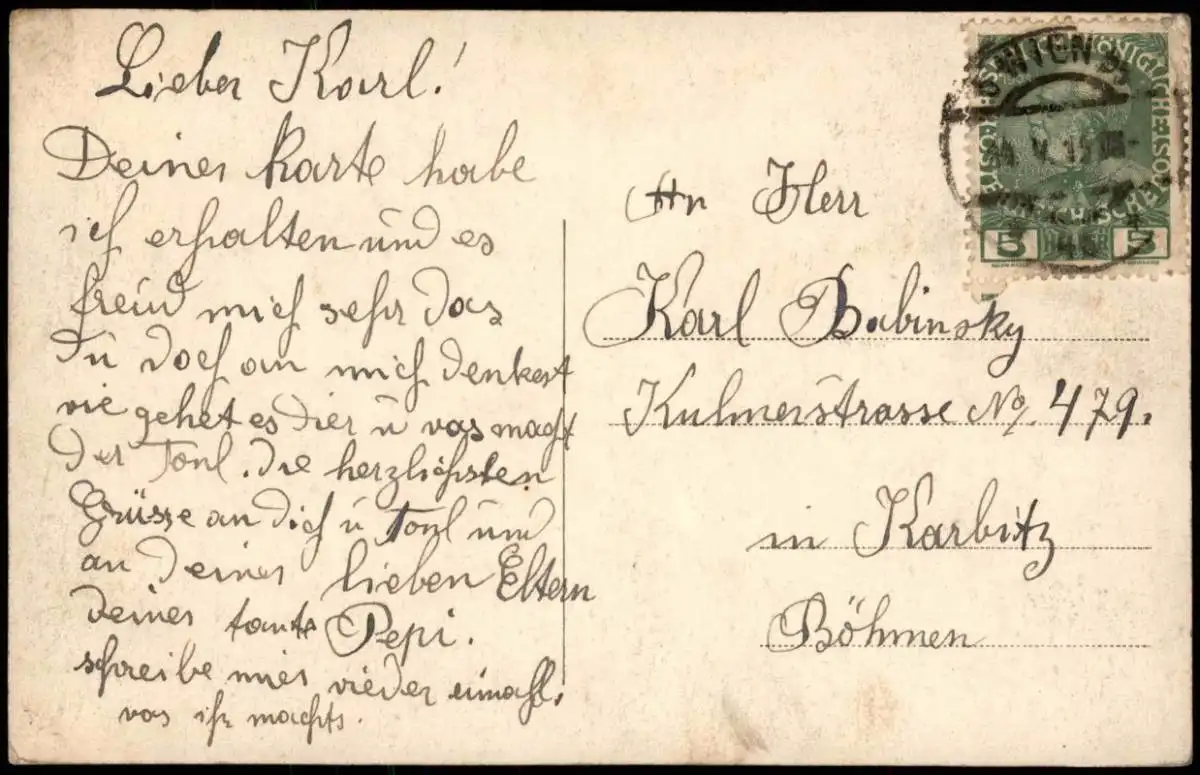 Lieber Karl!
Deines Karte habe
ich erhalten und es
freud mich sehr das
du doch an mich denkest
vie gehet es dier u vas macht
der Tonl. die herzlichsten
Grüsse an dich u Tonl und
an deines lieben Eltern
deines tante Pepi.
schreibe mier vieder eimahl.
vas ihr machts.
An Herr
Karl Babinsky
Kulmerstrasse No. 479.
in Karbitz
Böhmen
WIEN
V. 15
5 HELLER 5